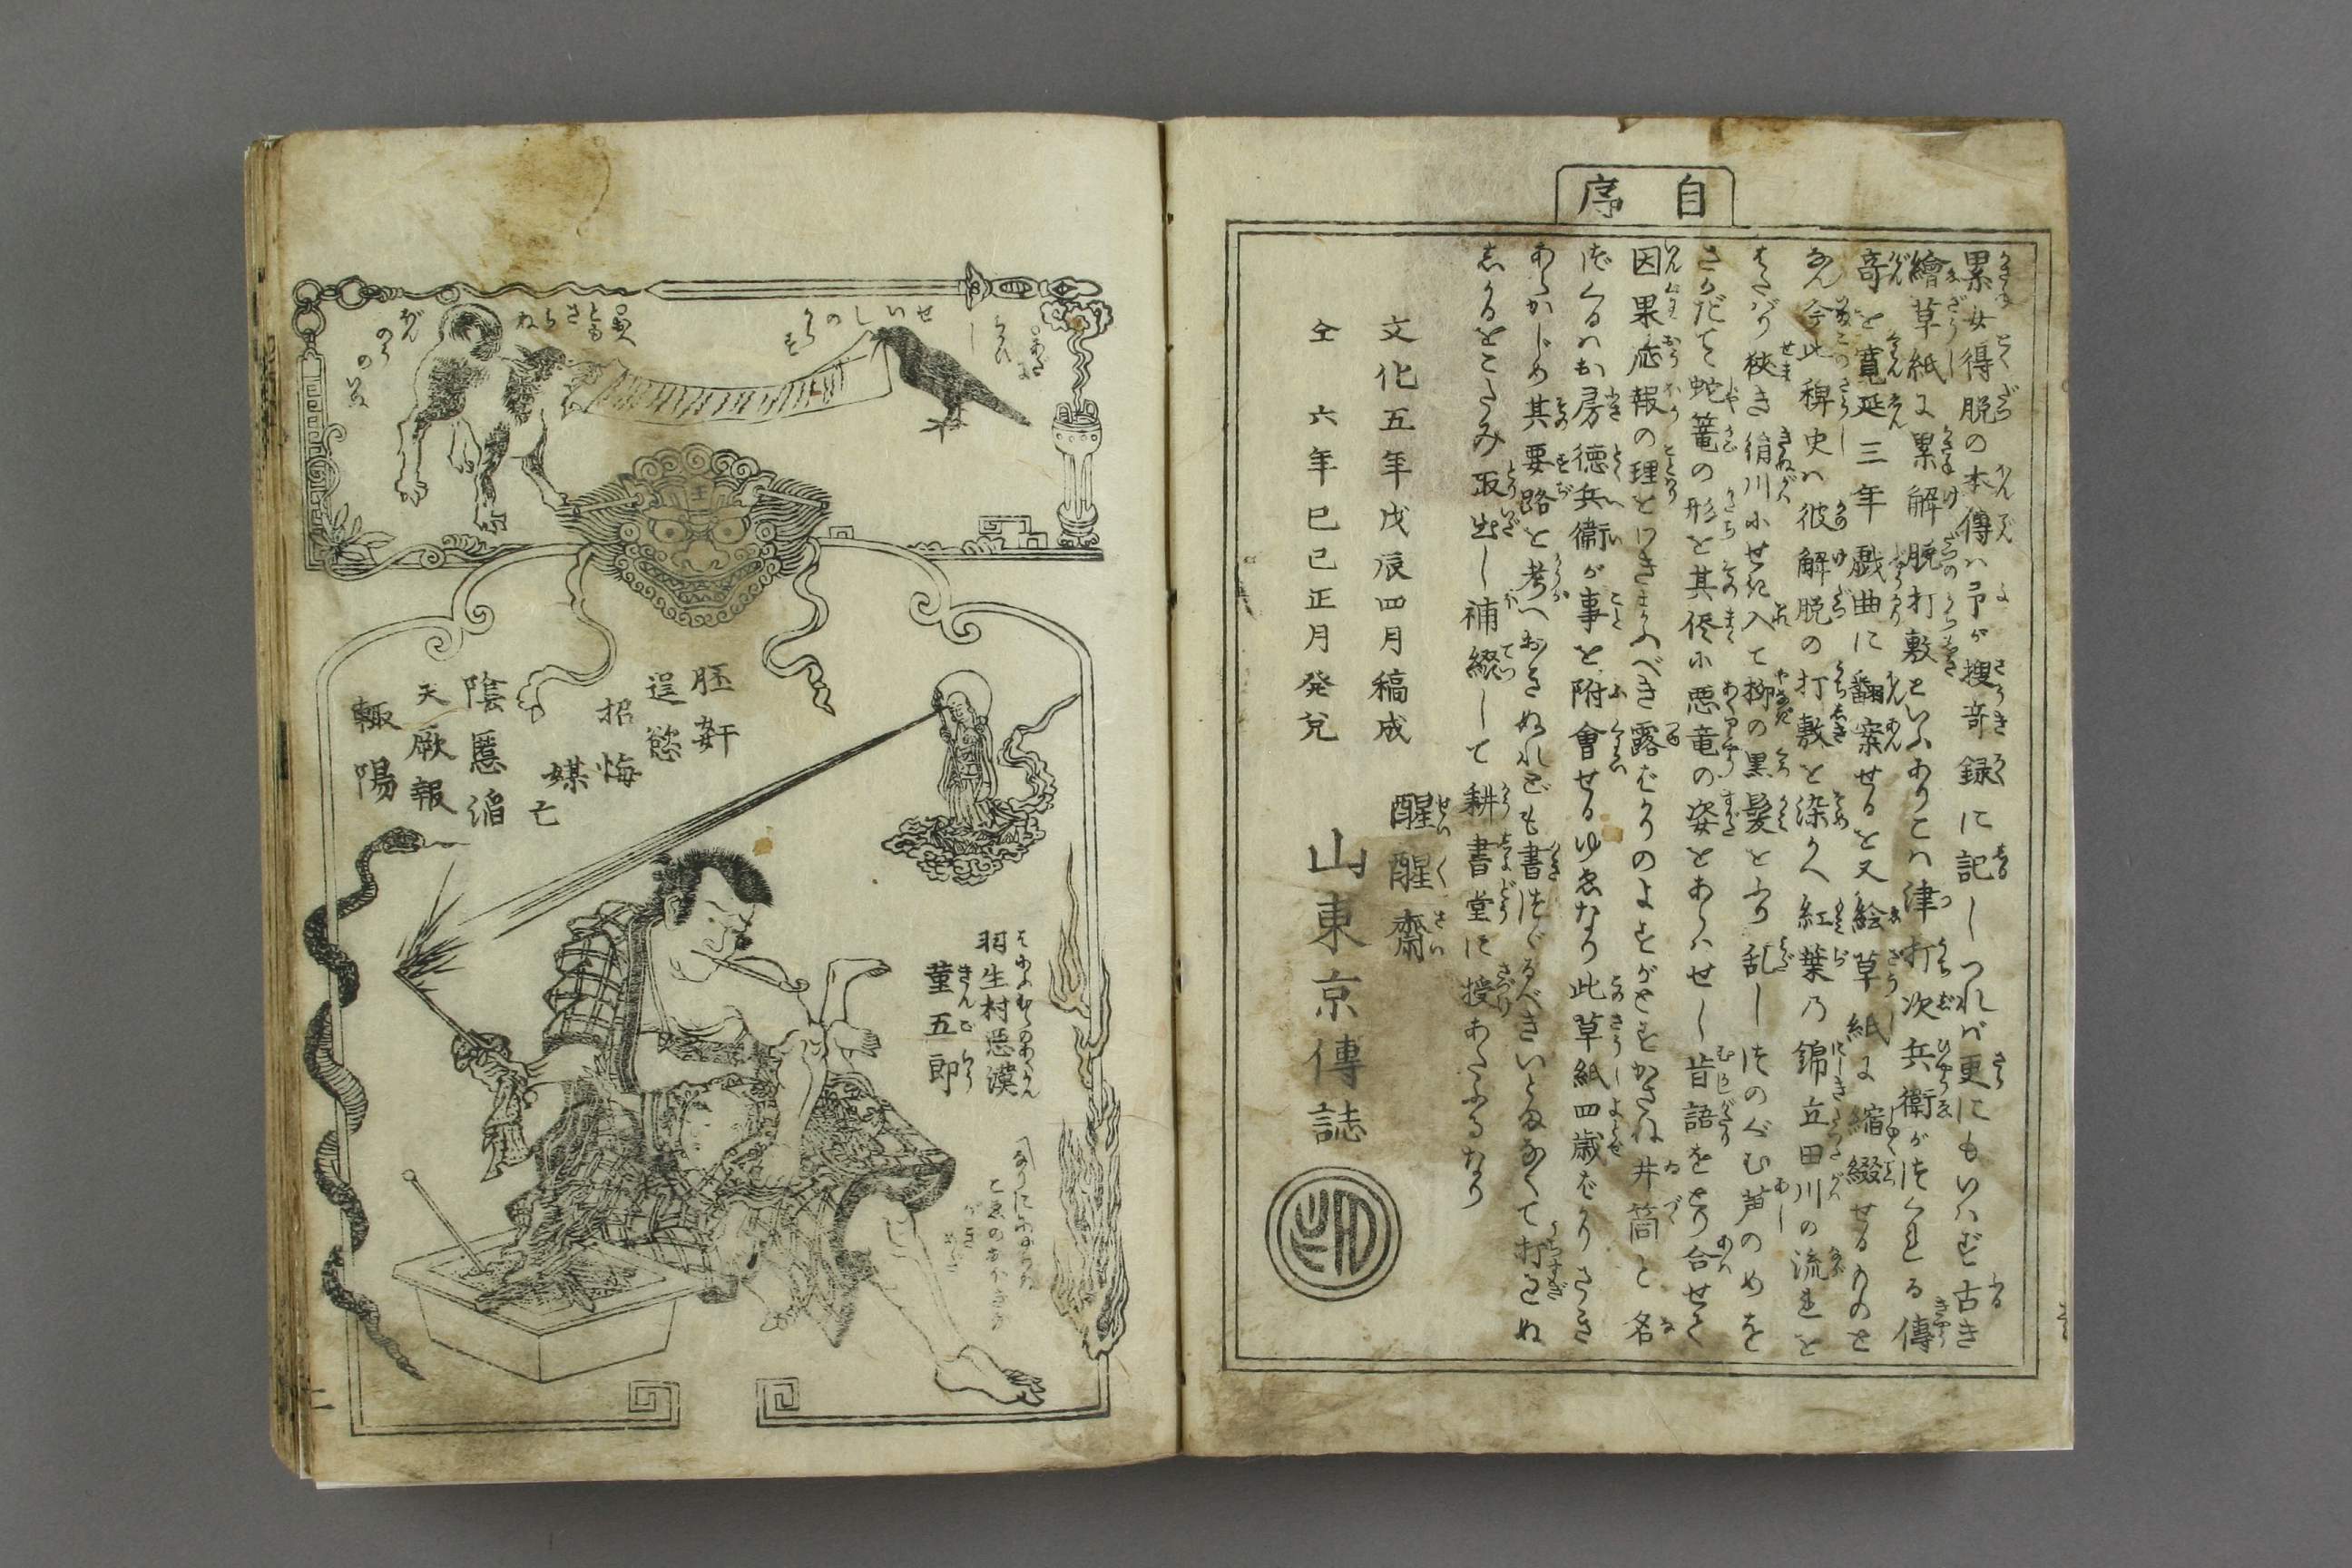 自序
累女得脱の本傳ハ予が捜竒録に記しつれバ更にもいはず古き
繪草紙に累解脱打敷といふありこハ津打次兵衛がつくれる傳
竒を寛延三年戯曲に翻案せるを又絵草紙に縮綴せるものと
なん今此稗史ハ彼解脱の打敷を染かへ紅葉乃錦立田川の流れを
せまき絹川にせき入て柳の黒髪をふり乱しつのぐむ芦のめを
さかだてて蛇篭の形を其侭に悪竜の姿をあらハせし昔語をとり合せて
因果応報の理をわきまふべき露ばかりのよすがともかさね井筒と名
づくるハお房徳兵衛が事を附會せるゆゑなり此草紙四歳ばかりさき
あらかじめ其要路を考へおきぬれども書つぐべきいとまなくて打過ぬ
しかるをことみ取出し補綴して耕書堂に授あたふるなり
文化五年戊辰四月稿成
仝六年巳巳正月発兌
醒醒齋
山東京傳誌
胚奸
逞慾
招悔
媒亡
陰慝滔
天厥報
輙陽
羽生村悪漢
董五郎
二